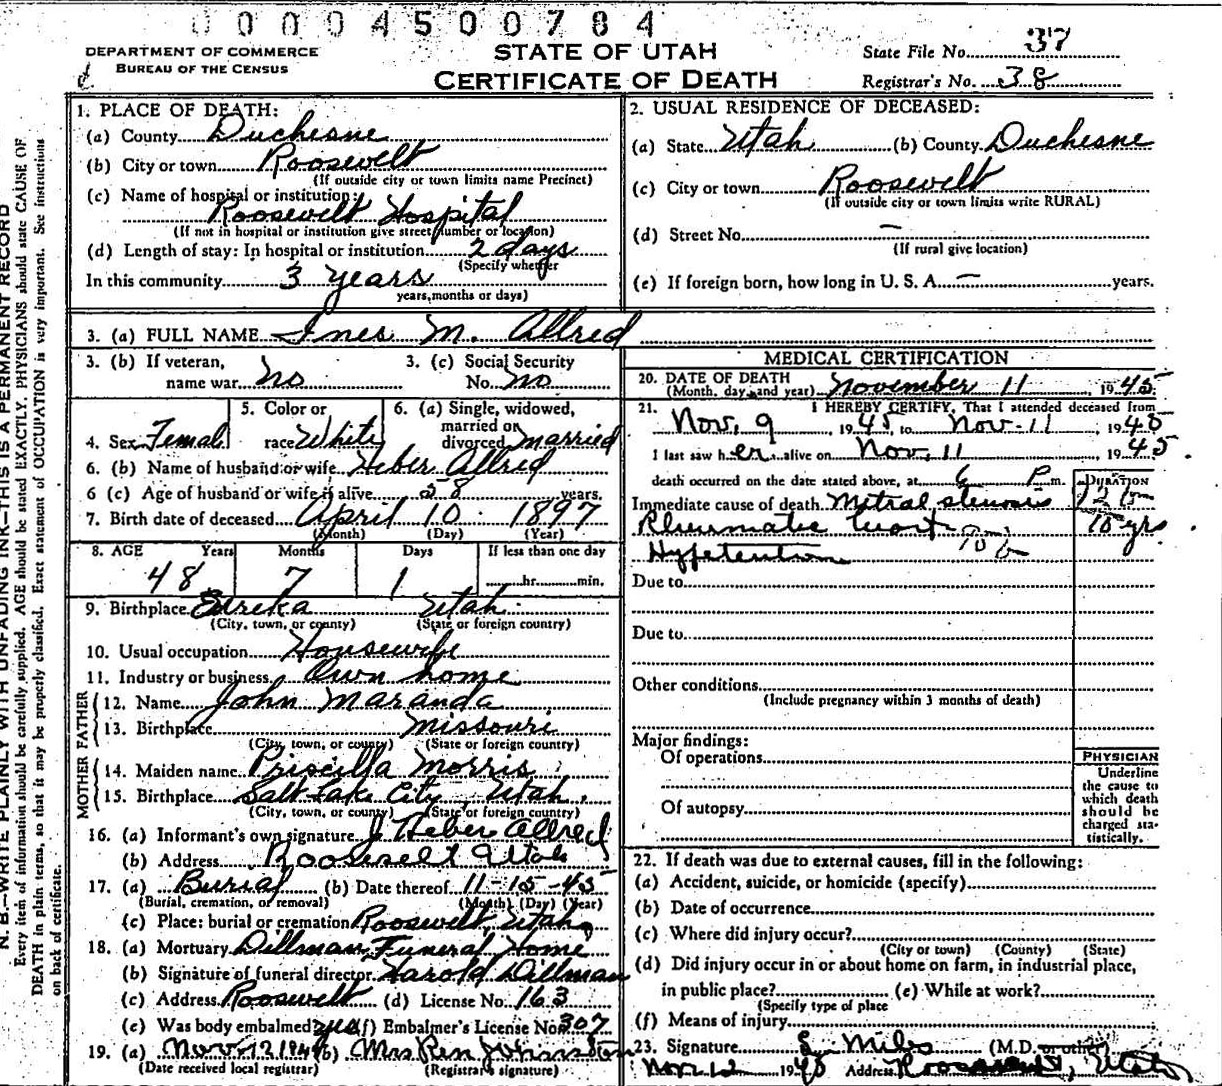 00004500784
DEPARTMENT OF COMMERCE
BUREAU OF THE CENSUS
STATE OF UTAH
CERTIFICATE OF DEATH
State File No. 37
Registrar's No. 38
N. B.—WRITE PLAINLY WITH UNFADING INK—THIS IS A PERMANENT RECORD
Every item of information should be carefully supplied. AGE should be stated EXACTLY. PHYSICIANS should state CAUSE OF
DEATH in plain terms, so that it may be properly classified. Exact statement of OCCUPATION is very important. See instructions
on back of certificate.
1. PLACE OF DEATH:
(a) County Duchesne
(b) City or town Roosevelt
(If outside city or town limits name Precinct)
(c) Name of hospital or institution:
Roosevelt Hospital
(If not in hospital or institution give street number or location)
(d) Length of stay: In hospital or institution 2 days
(Specify whether
In this community 3 years
years, months or days)
2. USUAL RESIDENCE OF DECEASED:
(a) State Utah (b) County Duchesne
(c) City or town Roosevelt
(If outside city or town limits write RURAL)
(d) Street No. —
(If rural give location)
(e) If foreign born, how long in U. S. A. — years.
3. (a) FULL NAME Ines M. Allred
3. (b) If veteran, name war no
3. (c) Social Security No. no
4. Sex Femal
5. Color or race White
6. (a) Single, widowed, married or divorced married
6. (b) Name of husband or wife Heber Allred
6 (c) Age of husband or wife if alive 58 years.
7. Birth date of deceased April 10 1897
(Month) (Day) (Year)
8. AGE Years Months Days If less than one day
48 7 1 hr. min.
9. Birthplace Eureka Utah
(City, town, or county) (State or foreign country)
10. Usual occupation Housewife
11. Industry or business Own home
FATHER
12. Name John Maranda
13. Birthplace Missouri
(City, town, or county) (State or foreign country)
MOTHER
14. Maiden name Priscilla Morris
15. Birthplace Salt Lake City, Utah.
(City, town, or county) (State or foreign country)
16. (a) Informant's own signature J Heber Allred
(b) Address Roosevelt Utah
17. (a) Burial (b) Date thereof 11-15-45
(Burial, cremation, or removal) (Month) (Day) (Year)
(c) Place: burial or cremation Roosevelt, Utah
18. (a) Mortuary Dillman Funeral Home
(b) Signature of funeral director Harold Dillman
(c) Address Roosevelt (d) License No. 163
(e) Was body embalmed yes (f) Embalmer's License No. 307
19. (a) Nov. 12 1945 (b) Mrs Ren Johnston
(Date received local registrar) (Registrar's signature)
MEDICAL CERTIFICATION
20. DATE OF DEATH
(Month, day, and year) November 11 1945
21. I HEREBY CERTIFY, That I attended deceased from
Nov. 9, 1945, to Nov. 11, 1945
I last saw her alive on Nov. 11 1945.
death occurred on the date stated above, at 6 P m.
DURATION
Immediate cause of death Mitral stenosis
Rheumatic heart 15 yrs
Hypetention
Due to
Due to
Other conditions
(Include pregnancy within 3 months of death)
Major findings:
Of operations
Of autopsy
PHYSICIAN
Underline
the cause to
which death
should be
charged sta-
tistically.
22. If death was due to external causes, fill in the following:
(a) Accident, suicide, or homicide (specify)
(b) Date of occurrence
(c) Where did injury occur?
(City or town) (County) (State)
(d) Did injury occur in or about home on farm, in industrial place,
in public place? (e) While at work?
(Specify type of place
(f) Means of injury
23. Signature L. Miles (M.D. or other)
Nov. 12 1945 Address Roosevelt, Utah